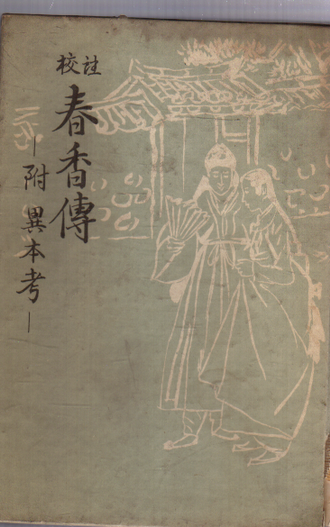 校註
春香傳
―附 異本考―